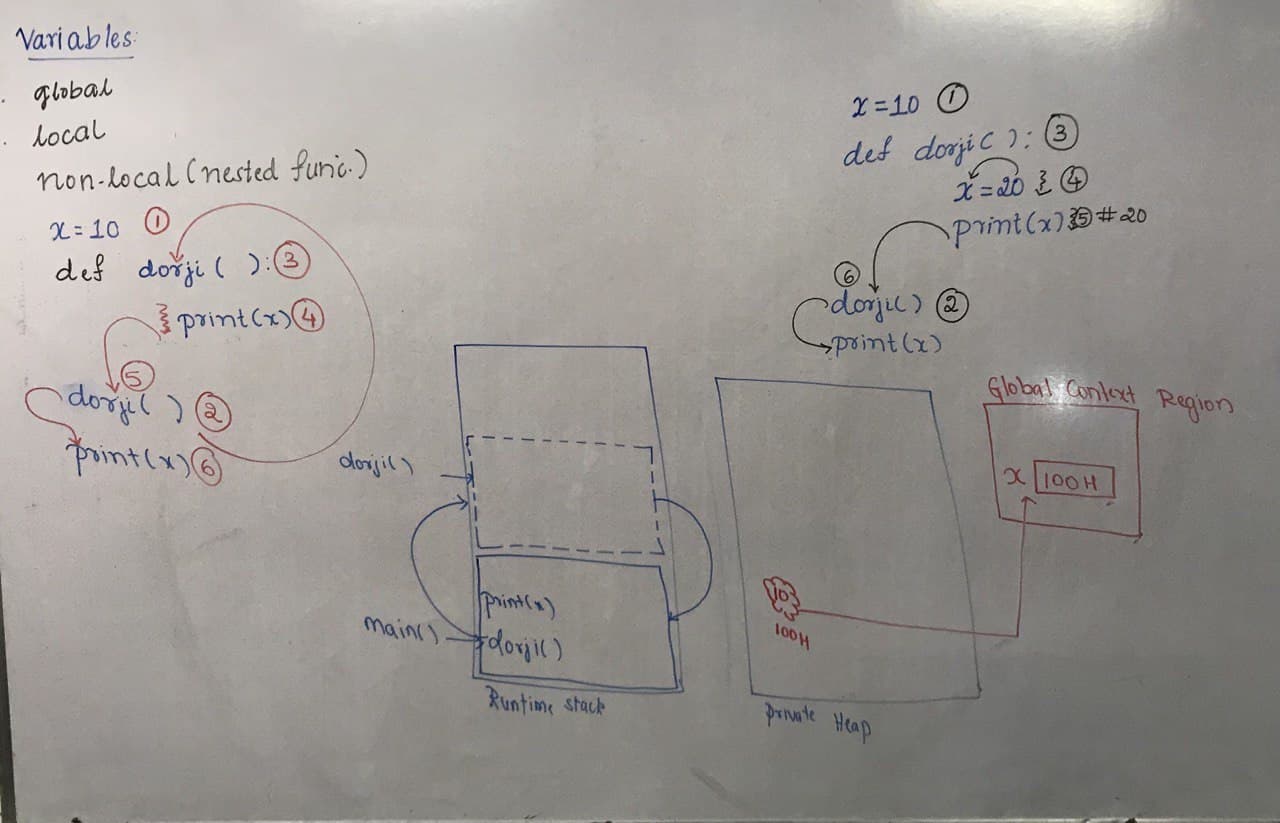 Variables:
. global
. local
non-local (nested func.)
x = 10 ①
def dorji ( ): ③
print(x) ④
⑤
dorji( ) ②
print(x) ⑥
x = 10 ①
def dorji( ): ③
x = 20 } ④
print(x) } ⑤ # 20
⑥
dorji() ②
print(x)
dorji()
print(x)
main()
dorji()
Runtime stack
10
100H
Private Heap
Global Context Region
x 100H